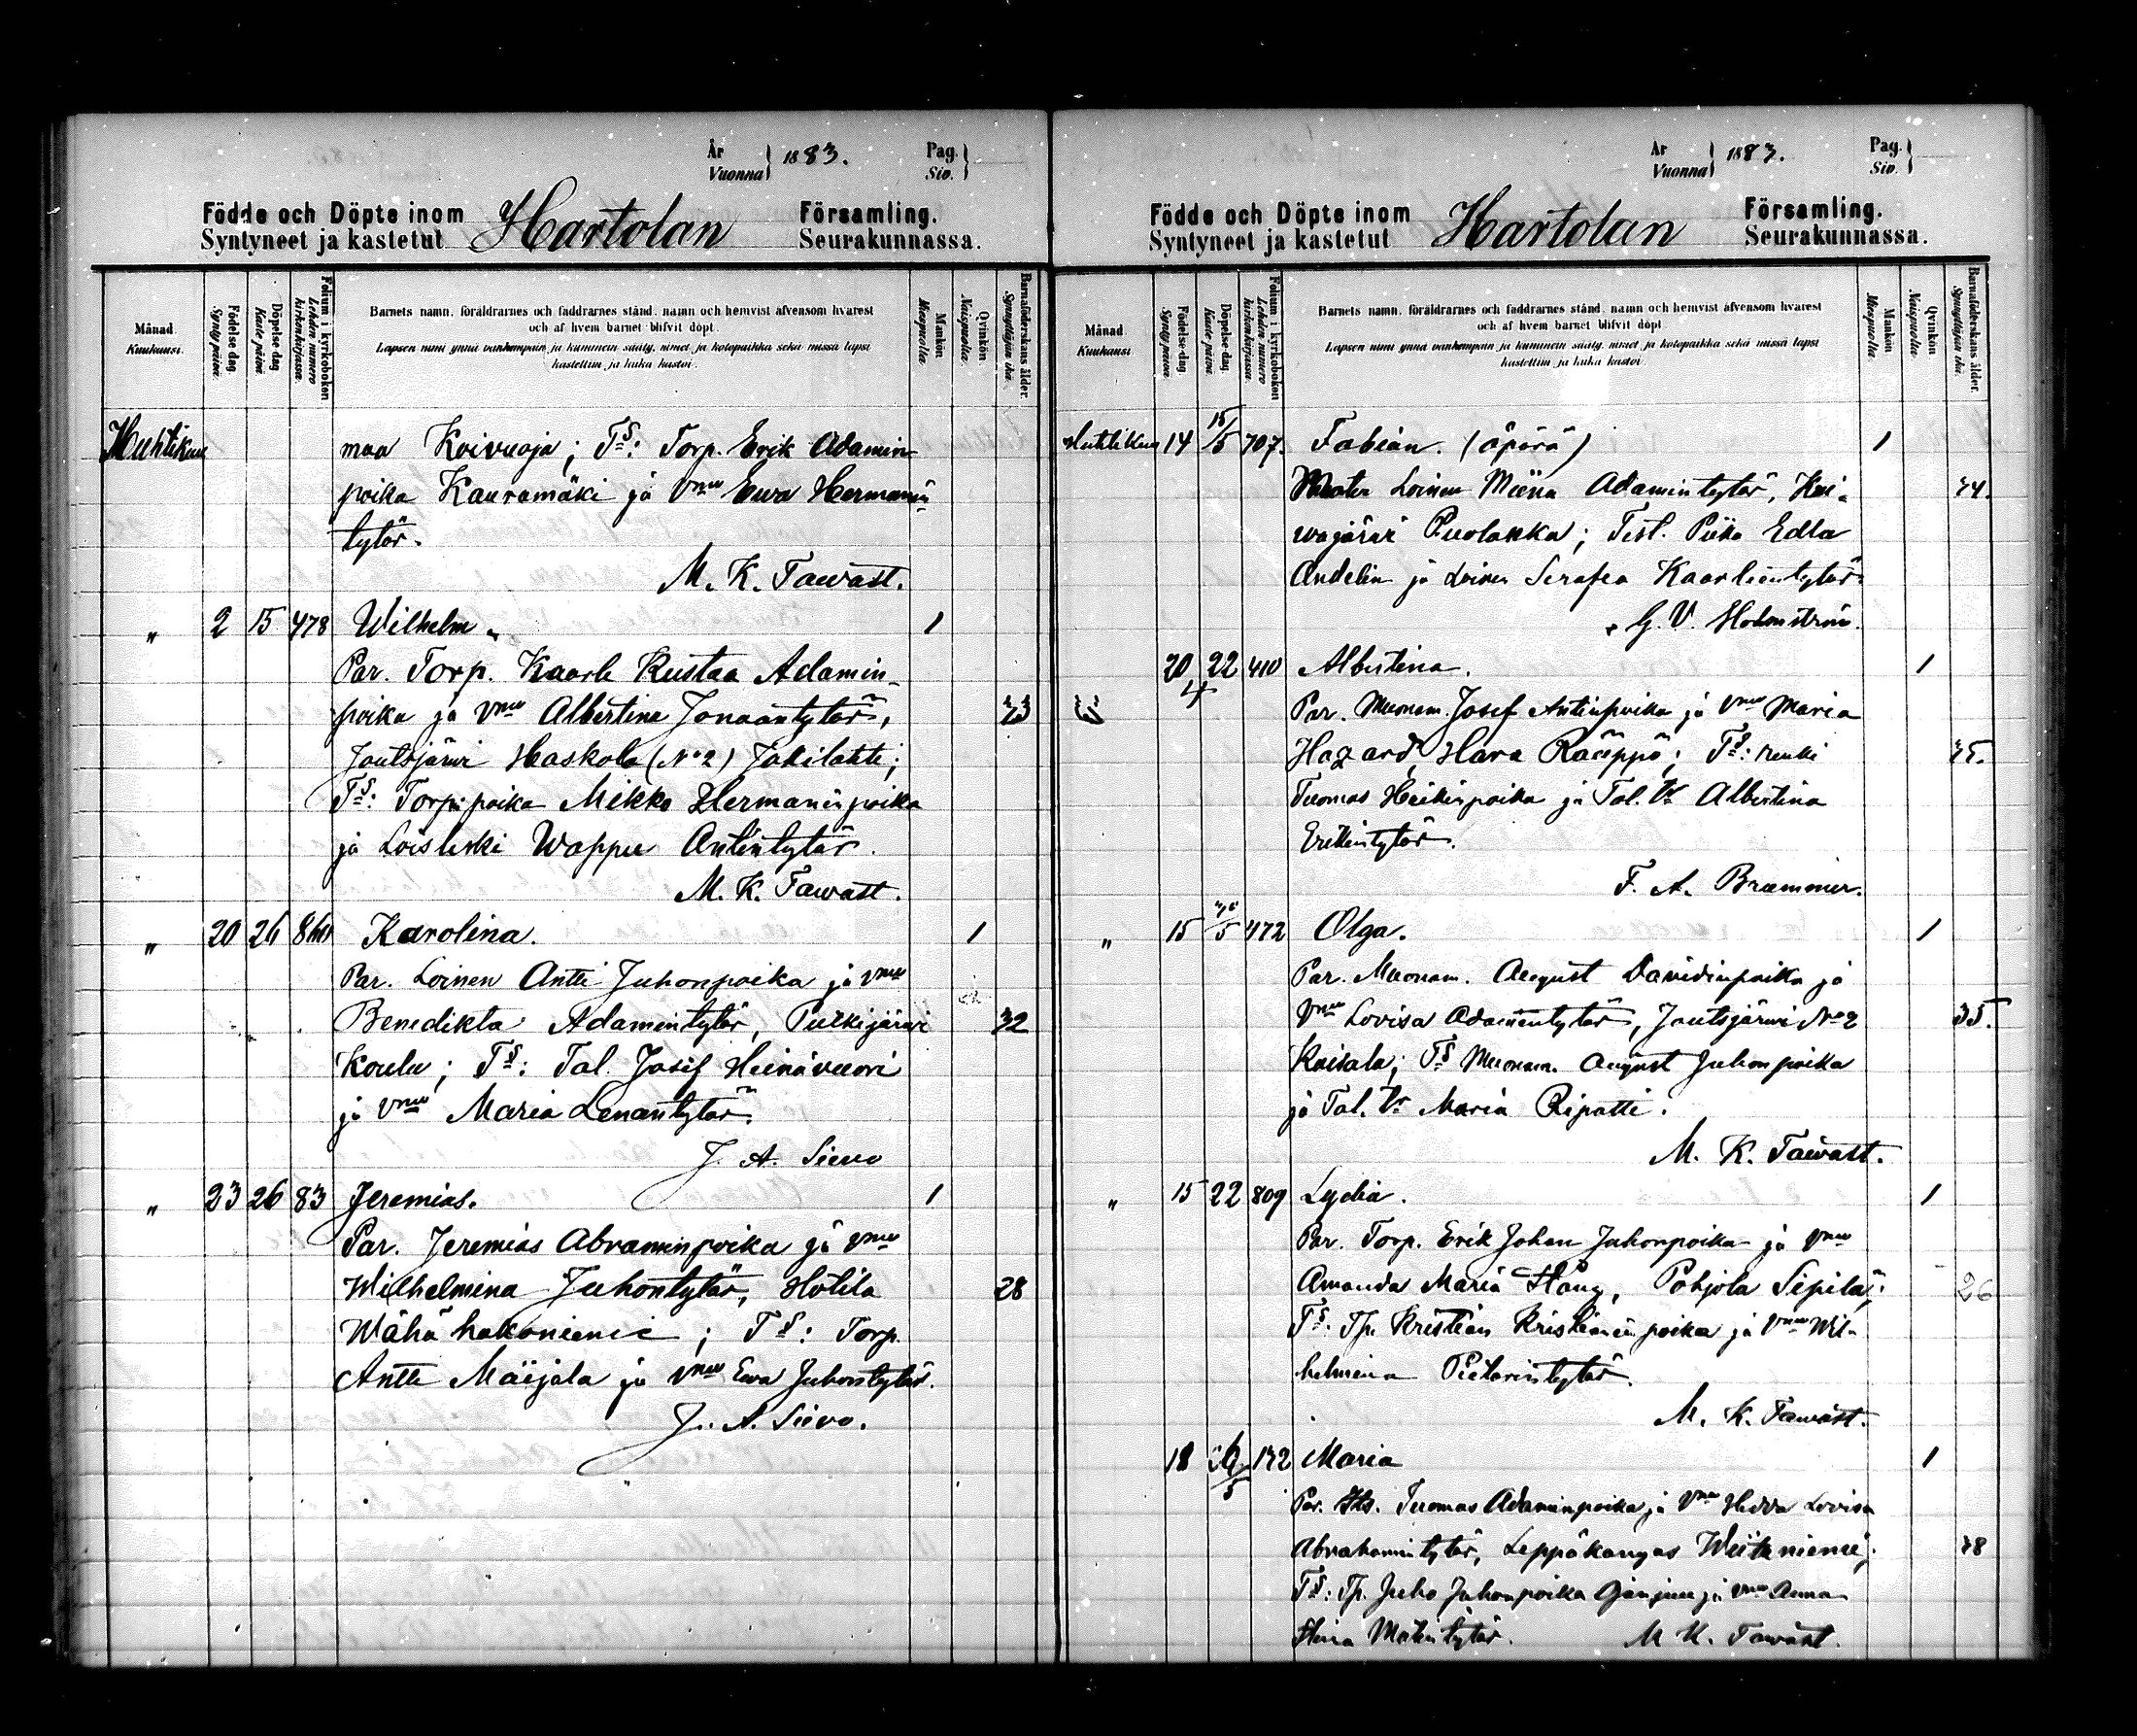 År
Vuonna
1883.
Pag.
Siv.
Födde och Döpte inom
Syntyneet ja kastetut
Hartolan
Församling.
Seurakunnassa.
Månad.
Kuukausi.
Födelse dag.
Synty päivä.
Döpelse dag
Kaste päivä
Folium i kyrkoboken
Lehden numero
kirkonkirjassa.
Barnets namn, föräldrarnes och faddrarnes stånd, namn och hemvist äfvensom hvarest
och af hvem barnet blifvit döpt.
Lapsen nimi ynnä vanhempain ja kummein sääty, nimet ja kotopaikka sekä missä lapsi
kastettiin ja kuka kastoi.
Mankön
Miespuolia.
Qvinkön.
Naispuolia.
Barnaföderskans ålder.
Synnyttäjän ikä.
Huhtikuu
maa Koivuoja; Ts: Torp. Erik Adamin
poika Kauramäki ja Vmo Ewa Hermanin
tytär.
M. K. Tawast.
„ 2 15 478 Wilhelm. 1
Par. Torp. Kaarle Kustaa Adamin-
poika ja Vmo Albertina Jonaantytär, 23
Joutsjärvi Haskola (No 2) Jokilahti;
Ts: Torp. poika Mikko Hermaninpoika
ja Loisleski Wappu Antintytär.
M. K. Tawast.
„ 20 26 Karolina. 1
Par. Loinen Antti Juhonpoika ja Vmo
Benedikta Adamintytär, Putkijärvi 32
Koulu; Ts: Tal. Josef Heinävuori
ja Vmo Maria Lenantytär.
J. A. Sievo
„ 23 26 83 Jeremias. 1
Par. Jeremias Abraminpoika ja Vmo
Wilhelmina Juhontytär, Hotila 28
Wähä hakoniemi; Ts: Torp.
Antti Maijala ja Vmo Ewa Juhontytär.
J. A. Sievo.
År
Vuonna
1883.
Pag.
Siv.
Födde och Döpte inom
Syntyneet ja kastetut
Hartolan
Församling.
Seurakunnassa.
Månad
Kuukausi
Födelse dag.
Synty päivä
Döpelse dag
Kaste päivä.
Folium i kyrkoboken
Lehden numero
kirkonkirjassa.
Barnets namn, föräldrarnes och faddrarnes stånd, namn och hemvist äfvensom hvarest
och af hvem barnet blifvit döpt.
Lapsen nimi ynnä vanhempain ja kummein sääty, nimet ja kotopaikka sekä missä lapsi
kastettiin ja kuka kastoi.
Mankön
Miespuolia
Qvinkön
Naispuolia.
Barnaföderskans ålder.
Synnyttäjän ikä.
Huhtikuu 14 15/5 707. Fabian. (äpärä) 1
Mater Loinen Miina Adamintytär, Kui- 24.
wajärvi Puolakka; Test. Piika Edla
Andelin ja Loinen Serafia Kaarleentytär
G. V. Holmström.
20/4 22 410 Albertina. 1
Par. Muonam. Josef Antinpoika ja Vmo Maria
Hazard, Hara Räeppö; Ts: renki 25.
Tuomas Heikinpoika ja Tal. tr Albertina
Erikintytär.
F. A. Brummer.
„ 15 472 Olga. 1
Par. Muonam. August Davidinpoika ja
Vmo Lovisa Adamintytär, Joutsjärvi No 2 35.
Koisala; Ts Muonam. August Juhonpoika
ja Tal. tr Maria Ripatti.
M. K. Tawast.
„ 15 22 809 Lydia. 1
Par. Torp. Erik Johan Juhonpoika ja Vmo
Amanda Maria Haug, Pohjola Sipilä; 26
Ts: Tp. Kristian Kristianinpoika ja Vmo Wil-
helmina Pietarintytär.
M. K. Tawast.
18 172 Maria 1
Par. Its. Tuomas Adaminpoika ja Vmo Hedda Lovisa
Abrahamintytär, Leppäkangas Weitiniemi; 28
Ts: Tp. Juho Juhonpoika Ojanjuu ja Vmo Anna
Stina Matintytär. M. K. Tawast.